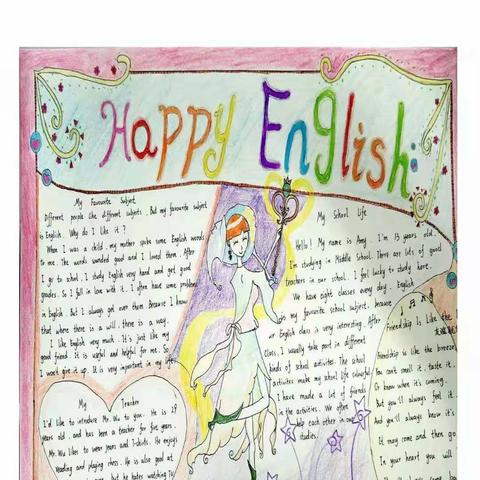 Happy English
My Favourite Subject
Different people like different subjects. But my favourite subject
is English. Why do I like it?
When I was a child, my mother spoke some English words
to me. The words sounded good and I loved them. After
I go to school, I study English very hard and get good
grades. So I fall in love with it. I often have some problems
in English. But I always get over them. Because I know
that where there is a will, there is a way.
I like English very much. It's just like my
good friend. It is useful and helpful for me. So
I won't give it up. It is very important in my life.
My School Life
Hello! My name is Amy. I'm 13 years old.
I'm studying in Middle School. There are lots of good
teachers in our school. I feel lucky to study here.
We have eight classes every day. English
is my favourite school subject, because
our English class is very interesting. After
class, I usually take part in different
kinds of school activities. The school
activities make my school life colourful.
I have made a lot of friends
in the activities. We often
help each other in our
studies.
My Teacher
I'd like to introduce Mr. Wu to you. He is 29
years old, and has been a teacher for five years.
Mr. Wu likes to wear jeans and T-shirts. He enjoys
reading and playing chess. He is also good at
but he hates watching TV
Friendship Is Like the
Friendship is like the breeze
You can't smell it, taste it
Or know when it's coming.
But you'll always feel it
And you'll always know it's
It may come and then go
In your heart you will